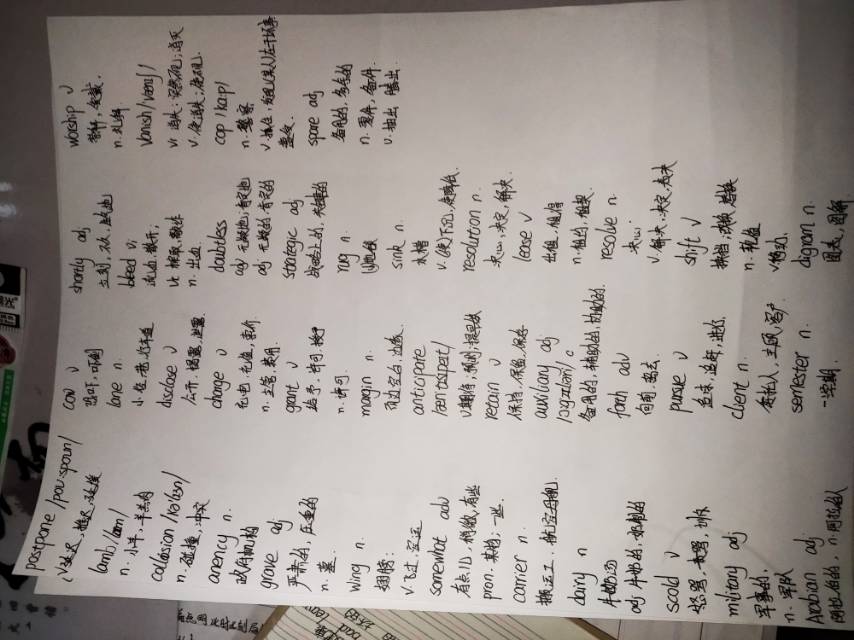 postpone /pəu:spoun/
v 延迟,推迟,延缓
lamb /læm/
n. 小羊,羊羔肉
collision /kə'lɪʒn/
n. 碰撞,冲突
anency n.
政府机构
grave adj
严肃的,庄重的
n. 墓
wing n.
翅膀;
v. 飞过 空运
somewhat adv
有点儿,稍微,有些
pron. 某物;一些
carrier n.
搬运工,航空母舰
dairy n
牛奶场
adj 牛奶的,奶制的
scold v
怒骂,责骂,训斥
military adj
军事的,
n. 军队
Arabian adj
阿拉伯的,n. 阿拉伯人
cow v
恐吓,吓倒
lane n.
小径,巷,行车道
disclose v
公开,揭露,泄露
charge v
充电,充值,索价
n. 主管,费用
grant v
给予,许可,授予
n. 许可
margin n.
页边空白,边缘
anticipate
/æntɪsɪpeɪt/
v. 期待,预测,提早做
retain v
保持,保留,保存
auxiliary adj
备用的,辅助的,协助的
forth adv
向前,出去
pursue v
追求,追踪,进行
client n.
委托人,主顾,客户
semester n.
一学期
shortly adj
立刻,不久,
bleed vi
流血,
vt 榨取,
n. 出血
doubtless
adv 无疑地;肯定地
adj 无疑的,肯定的
strategic adj
战略上的,关键的
rug n.
小地毯
sink n.
水槽
v. (使)下沉,使降低
resolution n.
决心,决定,解决
lease v
出租,租得
n. 租约,租契
resolve n.
决心
v. 解决,决定,表决
shift v
换挡;改换,替换
n. 轮值
v. 移动
diagram n.
图表,图解
worship v
崇拜,爱戴
n. 礼拜
vanish /vænɪʃ/
vi 消失;突然不见;消灭
v. 使消失;使不见
cop /kɑp/
n. 警察
v. 抓住,发现(某人)在干坏事
spare adj
备用的,多余的
n. 零件,备件
v. 抽出 腾出